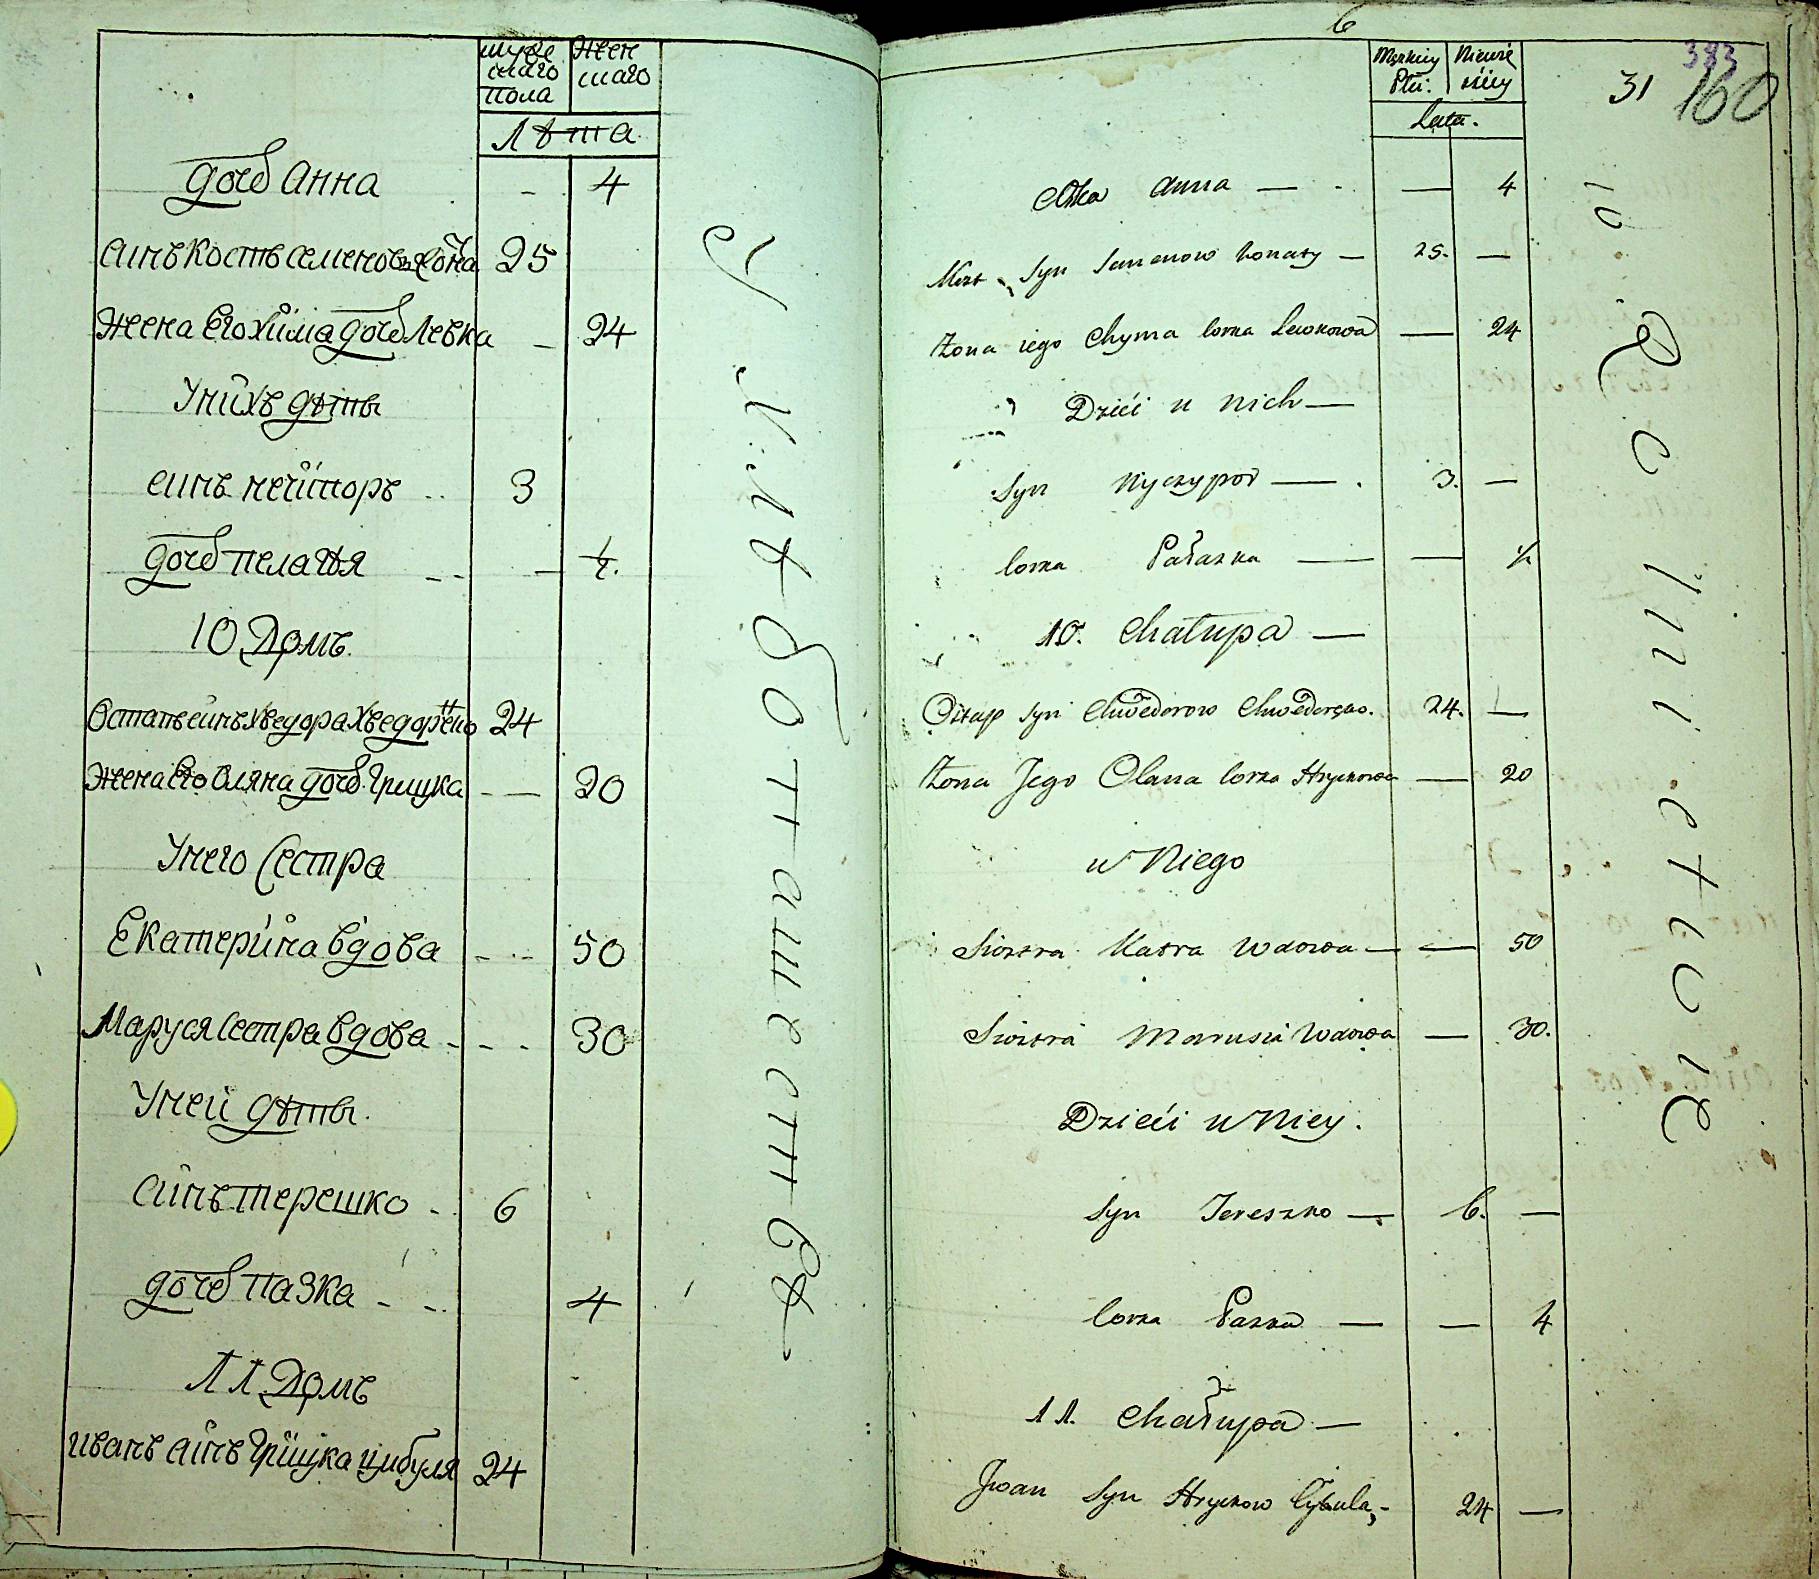 мужескаго пола
женскаго
Лѣта
дочь Анна - 4
синъ Кость Семеновъ 25
жена Его Хима дочь Левка - 24
Унихъ дѣты
синъ нечипоръ .. 3
дочь пелагѣя -- - ½.
10 Домъ.
Остапъ синъ хведора хведоренко 24
жена Его Оляна дочь Грицка - — 20
Унего Сестра
Екатерина вдова - .- 50
Маруся Сестра вдова - - - 30
Уней дѣты.
Синъ терешко - . 6
дочь пазка - -. 4
11 Домъ
иванъ Синъ Грицка цибуля 24
6
31
383
160
Męzkiey Płci.
Niewieściey
Lata.
Corka Anna — - — 4
Kost Syn Semenow Konaty — 25. —
Żona iego Chyma Corka Lewkowa — 24
Dzieci u nich —
Syn Nyczypor — . 3. —
Corka Pałazka — — ½
10. Chałupa —
Ostap Syn Chwedorow Chwedoręko. 24. —
Żona Jego Olana Corka Hryckowa — 20
u Niego
Siostra Katra Wdowa — — 50
Siostra Marusia Wdowa — 30.
Dzieci u Niey.
Syn Tereszko — 6. —
Corka Pazka — — 4
11. Chałupa —
Jwan Syn Hryckow Cybula, - 24 —